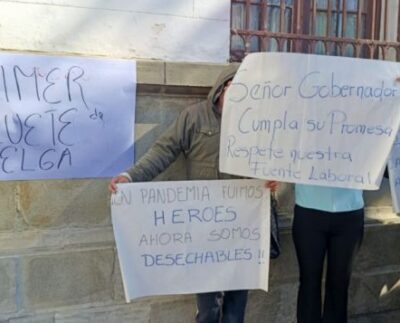 IMER
UETE de
ELGA
EN PANDEMIA FUIMOS
HEROES
AHORA SOMOS
DESECHABLES !!
Señor Gobernador
Cumpla su Promesa
Respete nuestra
Fuente Laboral